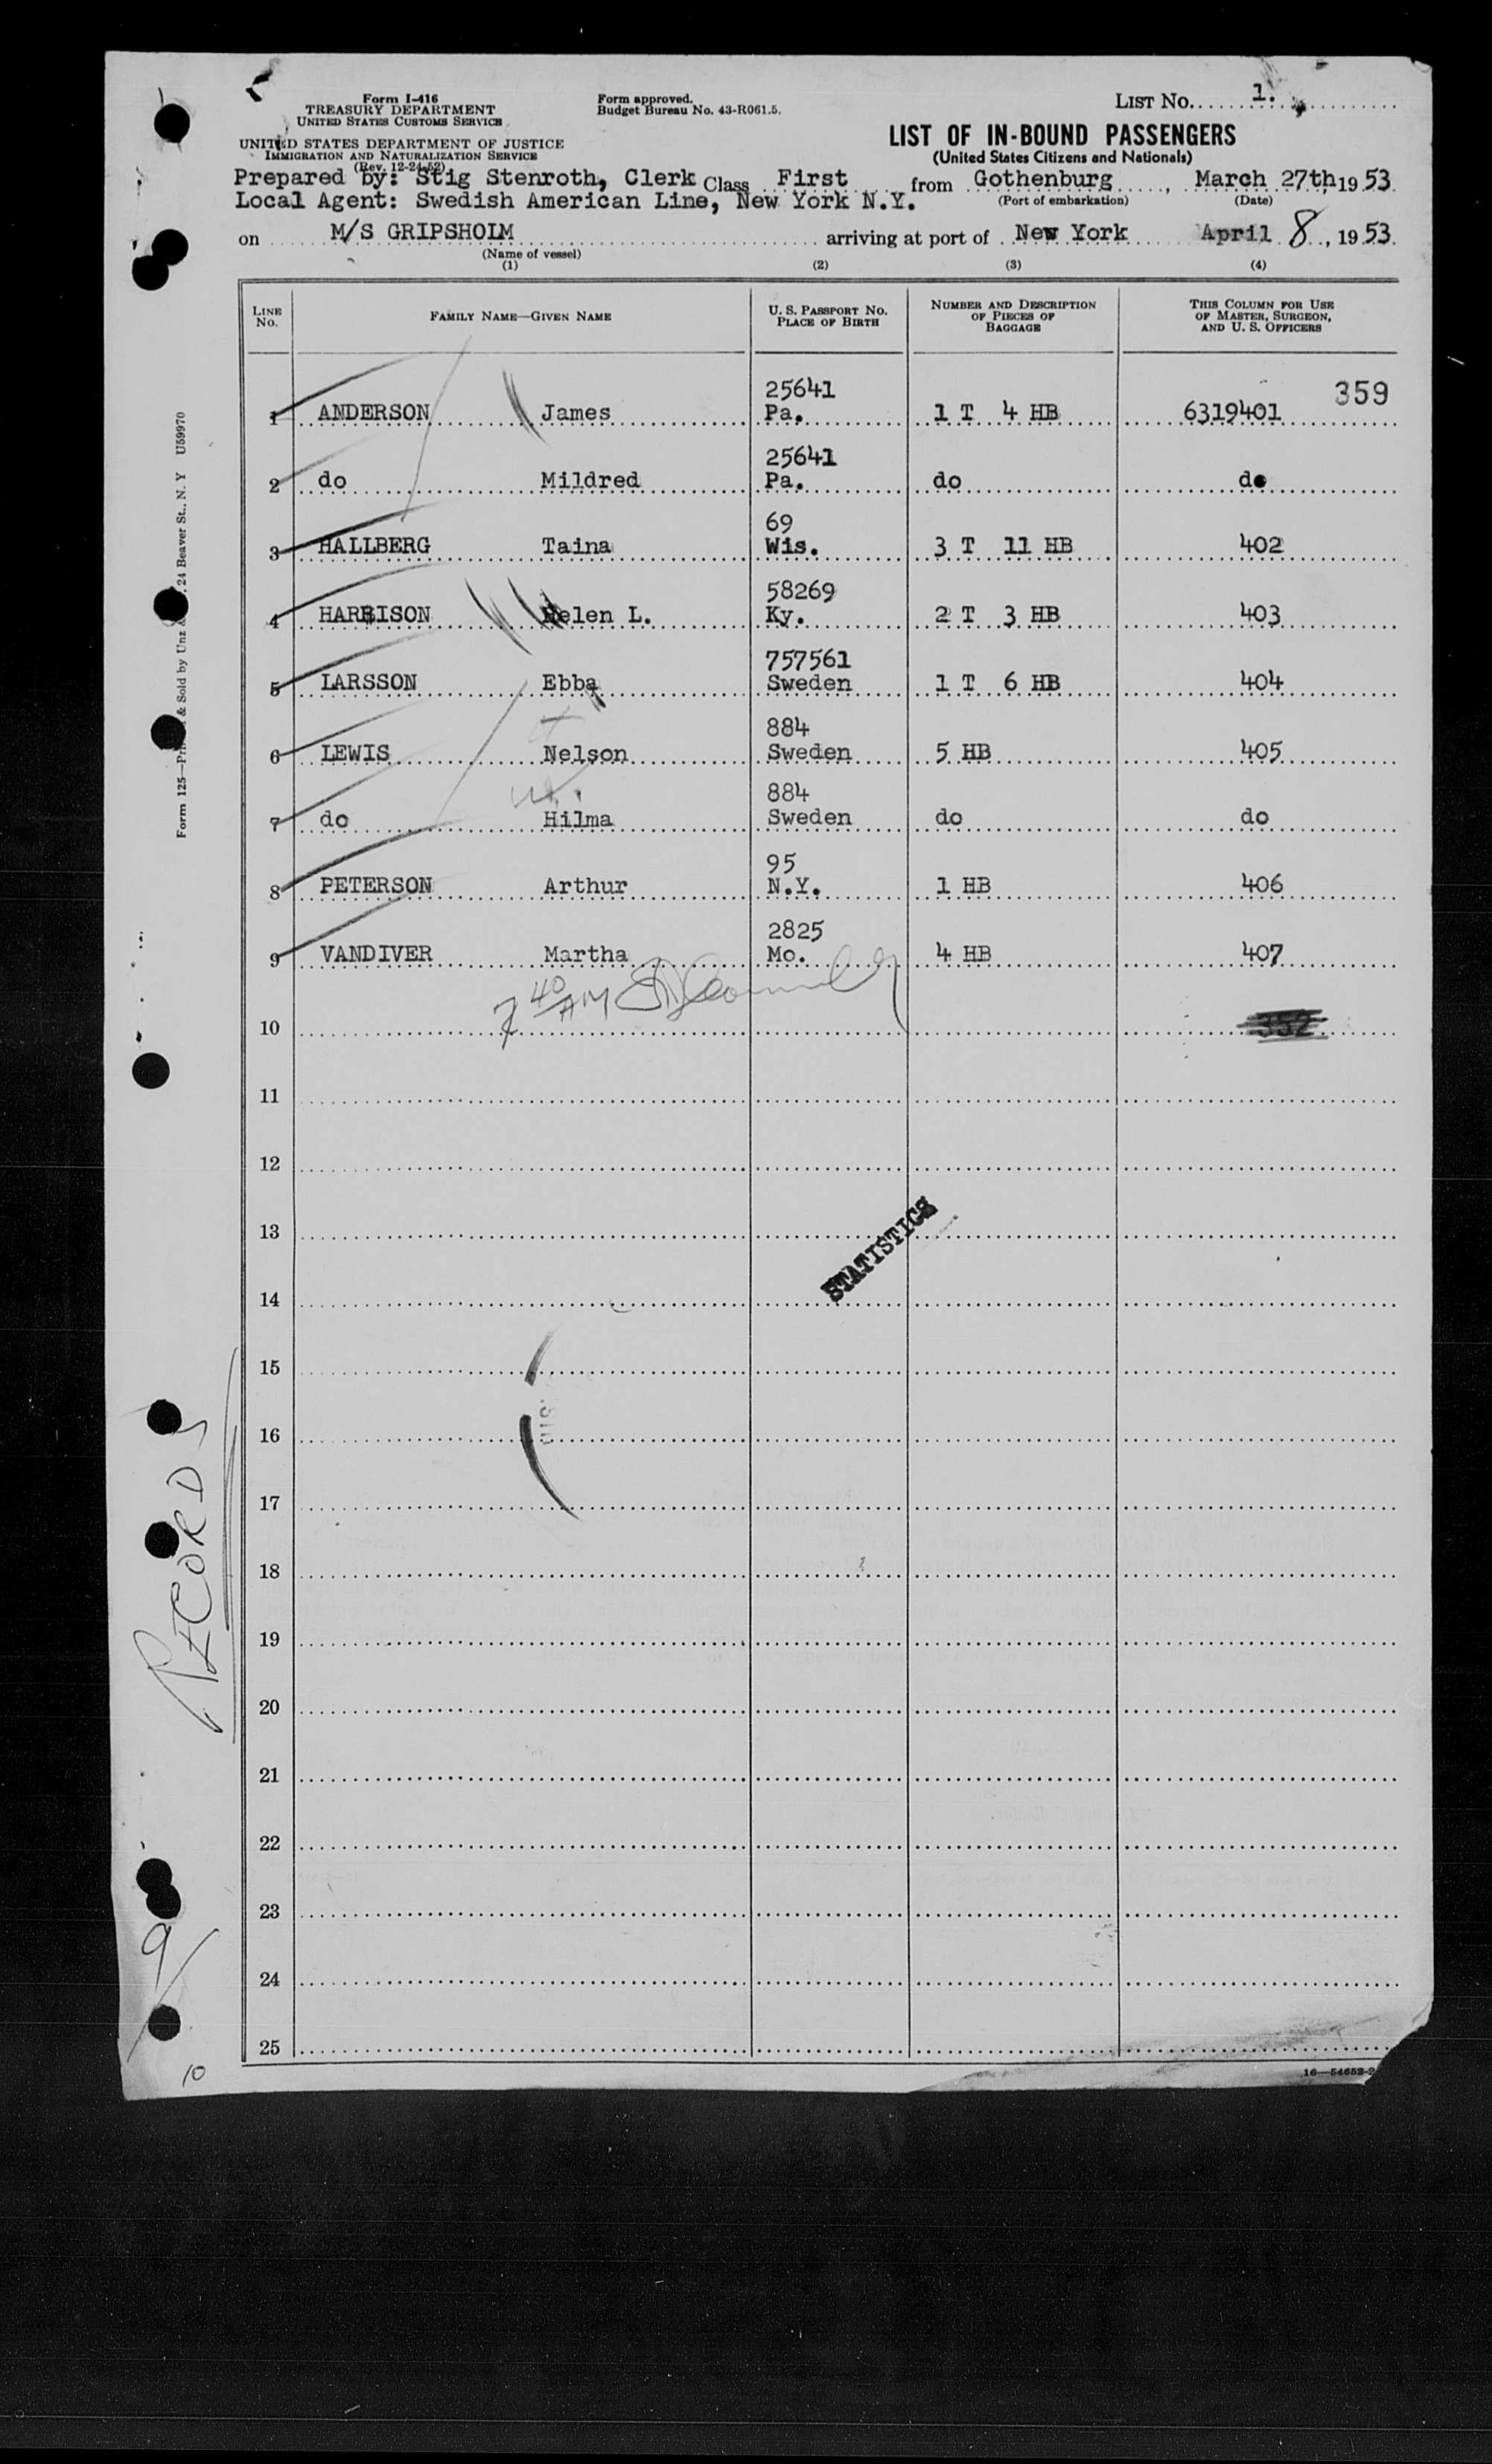 Form I-416
TREASURY DEPARTMENT
UNITED STATES CUSTOMS SERVICE
UNITED STATES DEPARTMENT OF JUSTICE
IMMIGRATION AND NATURALIZATION SERVICE
(Rev. 12-24-52)
Form approved.
Budget Bureau No. 43-R061.5.
LIST NO. 1.
LIST OF IN-BOUND PASSENGERS
(United States Citizens and Nationals)
Prepared by: Stig Stenroth, Clerk Class First from Gothenburg, March 27th 1953
Local Agent: Swedish American Line, New York N.Y. (Port of embarkation) (Date)
on M/S GRIPSHOLM arriving at port of New York April 8, 1953.
(Name of vessel)
(1) (2) (3) (4)
LINE NO. FAMILY NAME—GIVEN NAME U. S. PASSPORT NO. PLACE OF BIRTH NUMBER AND DESCRIPTION OF PIECES OF BAGGAGE THIS COLUMN FOR USE OF MASTER, SURGEON, AND U. S. OFFICERS
359
25641
1 ANDERSON James Pa. 1 T 4 HB 6319401
25641
2 do Mildred Pa. do do
69
3 HALLBERG Taina Wis. 3 T 11 HB 402
58269
4 HARRISON Helen L. Ky. 2 T 3 HB 403
757561
5 LARSSON Ebba Sweden 1 T 6 HB 404
884
6 LEWIS Nelson Sweden 5 HB 405
884
7 do Hilma Sweden do do
95
8 PETERSON Arthur N.Y. 1 HB 406
2825
9 VANDIVER Martha Mo. 4 HB 407
7 40 AM
10 352
11
12
13
STATISTICS
14
15
16
17
18
19
20
21
22
23
24
25
16—54652-2
Form 125—Printed & Sold by Unz & 24 Beaver St., N. Y U59970
RECORDS
9
10